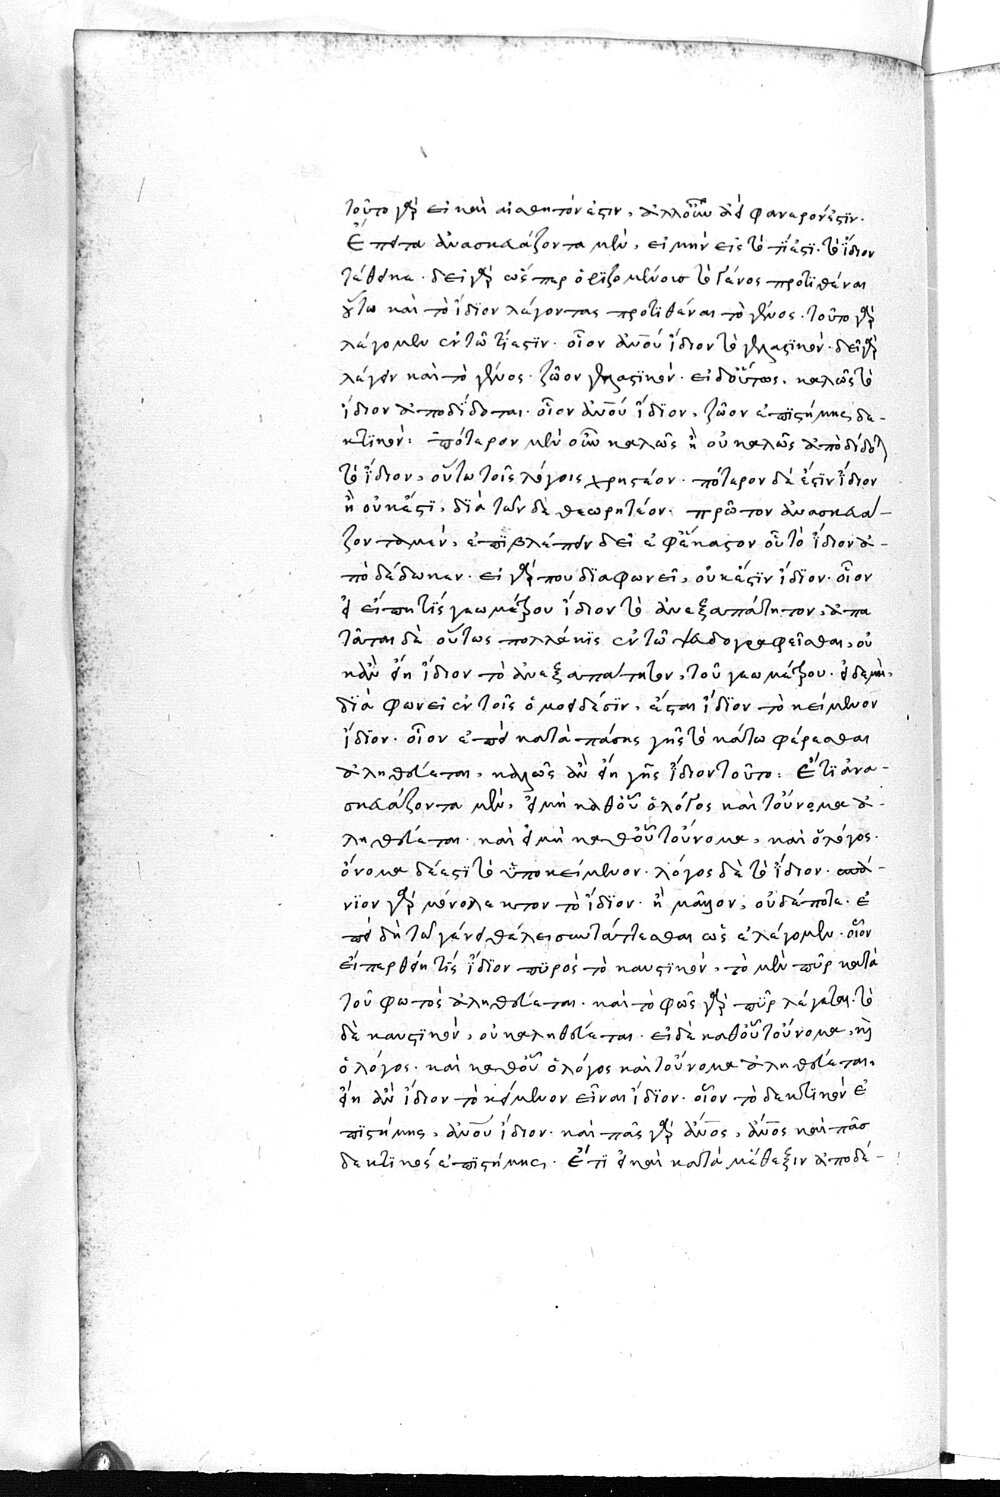 τοῦτο γὰρ εἰ καὶ αἰσθητόν ἐστιν, ἀλλ' οὖν ἀεὶ φανερόν ἐστιν.
Ἔπειτα ἀνασκευάζοντα μὲν, εἰ μὴν εἰς τὸ τί ἐστι τὸ ἴδιον
τέθεικα. δεῖ γὰρ ὥσπερ ὁριζομένοις τὸ γένος προτιθέναι
οὕτω καὶ τὸ ἴδιον λέγοντας προτιθέναι τὸ γένος. τοῦτο γὰρ
λέγομεν ἐν τῶ τί ἐστιν. οἷον ἀνου ἴδιον τὸ γελαστικόν. δεῖ γὰρ
λέγειν καὶ τὸ γένος. ζῶον γελαστικόν. εἰ δ' οὕτως, καλῶς τὸ
ἴδιον ἀποδίδοται. οἷον ἀνου ἴδιον, ζῶον ἐπιστήμης δε-
κτικόν: πότερον μὲν οὖν καλῶς ἢ οὐ καλῶς ἀποδίδοται
τὸ ἴδιον, οὕτω τοῖς λόγοις χρηστέον. πότερον δέ ἐστιν ἴδιον
ἢ οὐκ ἔστι, διὰ τῶνδε θεωρητέον. πρῶτον ἀνασκευά-
ζοντα μὲν, ἐπιβλέπειν δεῖ ἐφ' ἕκαστον οὗ τὸ ἴδιον ἀ-
ποδέδωκεν. εἰ γάρ που διαφωνεῖ, οὐκ ἔστιν ἴδιον. οἷον
εἰ εἴπη τίς γεωμέτρου ἴδιον τὸ ἀνεξαπάτητον, ἀπα
τᾶται δὲ οὗτος πολλάκις ἐν τῶ ψευδογραφεῖσθαι, οὐ
κἂν εἴη ἴδιον τὸ ἀνεξαπάτητον, τοῦ γεωμέτρου. εἰ δὲ μὴ
διαφωνεῖ ἐν τοῖς ὁμοειδέσιν, ἔσται ἴδιον τὸ κείμενον
ἴδιον. οἷον ἐπεὶ κατὰ πάσης γῆς τὸ κάτω φέρεσθαι
ἀληθεύεται, καλῶς ἂν εἴη γῆς ἴδιον τοῦτο: Ἔτι ἀνα-
σκευάζοντα μὲν, εἰ μὴ καθ' οὗ ὁ λόγος καὶ τοὔνομα ἀ-
ληθεύεται. καὶ εἰ μὴ καθ' οὗ τοὔνομα, καὶ ὁ λόγος.
ὄνομα δέ ἐστι τὸ ὑποκείμενον. λόγος δὲ τὸ ἴδιον.
ἢ μᾶλλον, οὐδέποτε. ἐ
πεὶ δὴ τῶ γένει θέλει συντάττεσθαι ὡς ἐλέγομεν. οἷον
εἴπερ θείη τίς ἴδιον πυρὸς τὸ καυστικόν, τὸ μὲν πῦρ κατὰ
τοῦ φωτὸς ἀληθεύεται. καὶ τὸ φῶς γὰρ πῦρ λέγεται. τὸ
δὲ καυστικόν, οὐκ ἀληθεύεται. εἰ δὲ καθ' οὗ τοὔνομα, καὶ
ὁ λόγος. καὶ καθ' οὗ ὁ λόγος καὶ τοὔνομα ἀληθεύεται,
εἴη ἂν ἴδιον τὸ κείμενον εἶναι ἴδιον. οἷον τὸ δεκτικὸν ἐ
πιστήμης, ἀνου ἴδιον. καὶ πᾶς γὰρ ἀνος, ἀνος καὶ πᾶσ
δεκτικὸς ἐπιστήμης. Ἔτι εἰ καὶ κατὰ μέθεξιν ἀποδέ-